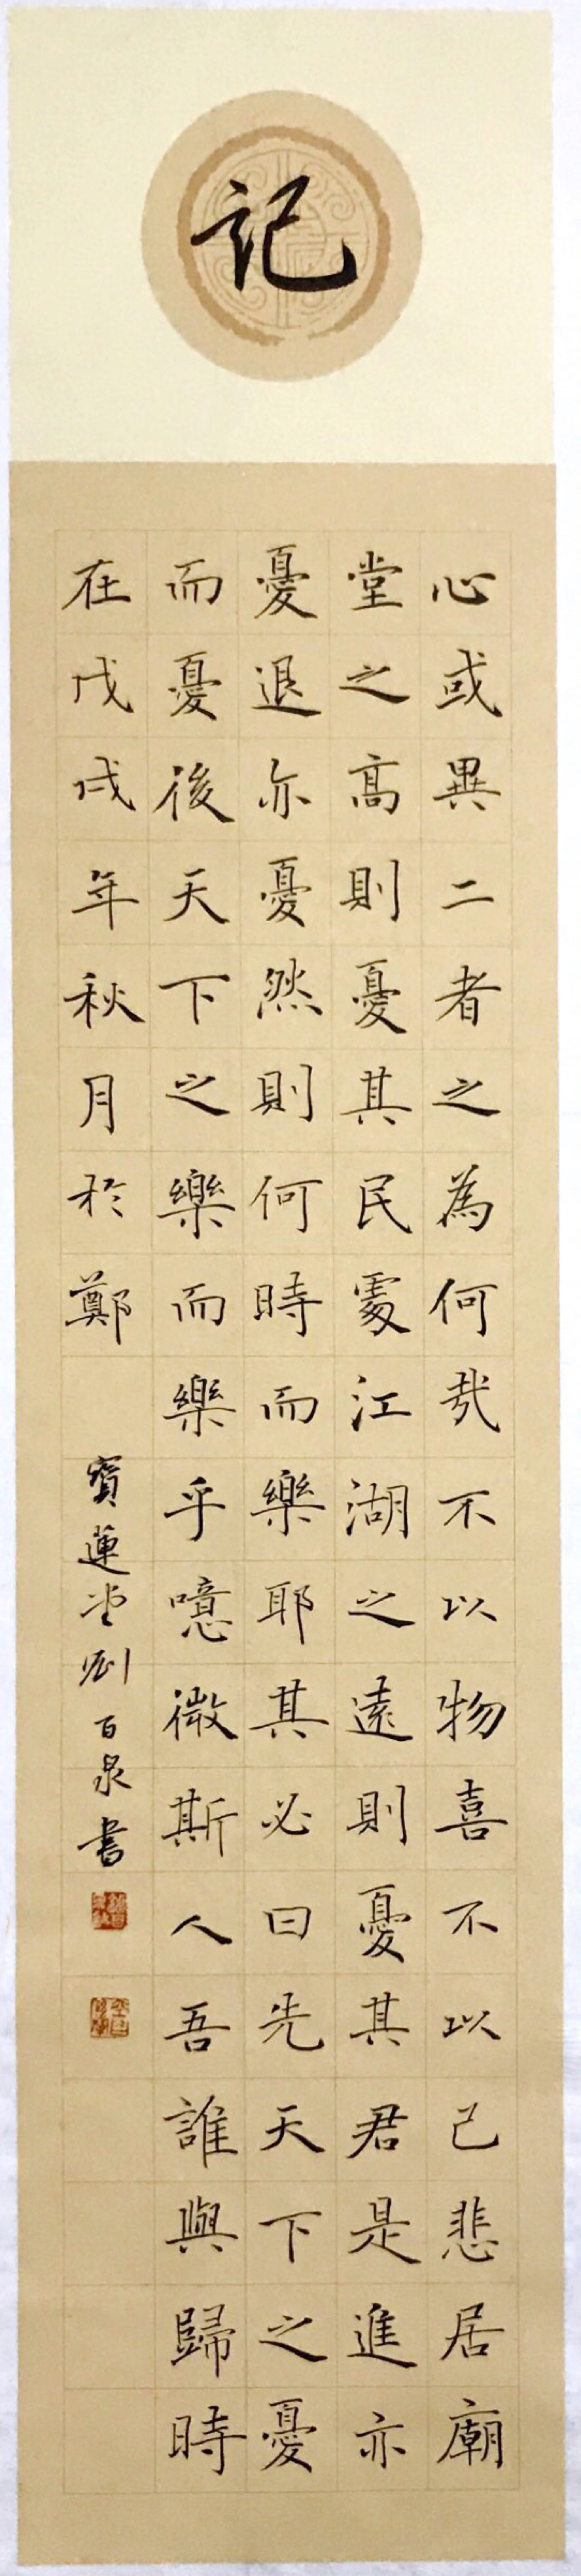 記
心或異二者之為何哉不以物喜不以己悲居廟
堂之高則憂其民處江湖之遠則憂其君是進亦
憂退亦憂然則何時而樂耶其必曰先天下之憂
而憂後天下之樂而樂乎噫微斯人吾誰與歸時
在戊戌年秋月於鄭
寶蓮堂劉百泉書